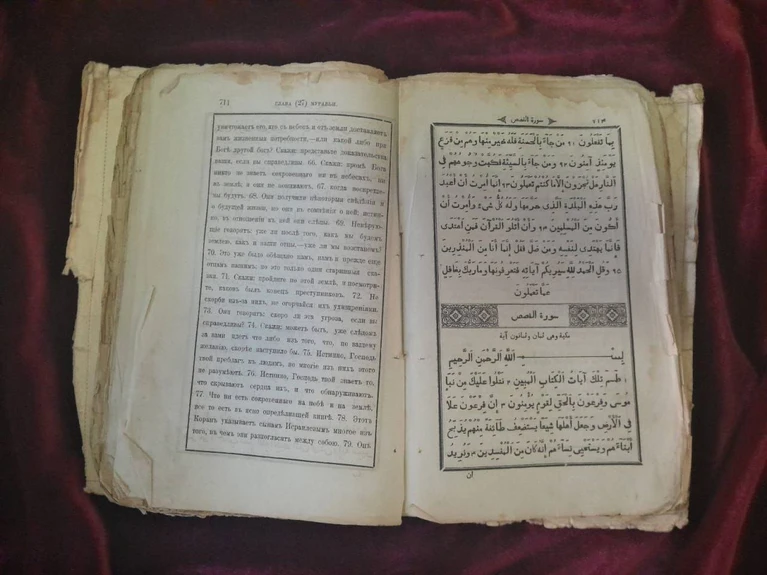 711
ГЛАВА (27) МУРАВЬИ.
уничтожаетъ его, кто съ небесъ и отъ земли доставляетъ
вамъ жизненныя потребности,—или какой либо при
Богѣ другой богъ? Скажи: представьте доказательства
ваши, если вы справедливы. 66. Скажи: кромѣ Бога
никто не знаетъ сокровеннаго ни на небесахъ, ни
на землѣ, а они не понимаютъ, 67. когда воскреше-
ны будутъ. 68. Они получили нѣкоторыя свѣдѣнія и
о будущей жизни, но они въ сомнѣніи о ней; истин-
но, въ отношеніи къ ней они слѣпы. 69. Невѣрую-
щіе говорятъ: уже ли послѣ того, какъ мы будемъ
землею, какъ и наши отцы,—уже ли мы возстанемъ?
70. Это уже было обѣщано намъ, намъ и прежде еще
отцамъ нашимъ; но это только одни старинныя ска-
занія. 71. Скажи: пройдите по этой землѣ, и посмотри-
те, каковъ былъ конецъ преступниковъ. 72. Не
скорби изъ-за нихъ, не огорчайся ихъ ухищреніями.
73. Они говорятъ: скоро ли эта угроза, если вы
справедливы? 74. Скажи: можетъ быть, уже слѣдомъ
за вами идетъ что либо изъ того, что, по вашему
желанію, скорѣе наступило бы. 75. Истинно, Господь
твой преблагъ къ людямъ, но многіе изъ нихъ этого
не разумѣютъ. 76. Истинно, Господь твой знаетъ то,
что скрываютъ сердца ихъ, и что обнаруживаютъ.
77. Что ни есть сокровенное на небѣ и на землѣ,
все то есть въ ясно опредѣлившей книгѣ. 78. Этотъ
Коранъ указываетъ сынамъ Исраилевымъ многое изъ
того, въ чемъ они разногласятъ между собою. 79. Онъ
سورة القصص
٧١٣
بِمَا تَفْعَلُونَ ٩١ مَنْ جَاءَ بِالْحَسَنَةِ فَلَهُ خَيْرٌ مِنْهَا وَهُمْ مِنْ فَزَعٍ
يَوْمَئِذٍ آمِنُونَ ٩٢ وَمَنْ جَاءَ بِالسَّيِّئَةِ فَكُبَّتْ وُجُوهُهُمْ فِي
النَّارِ هَلْ تُجْزَوْنَ إِلَّا مَا كُنْتُمْ تَعْمَلُونَ ٩٣ إِنَّمَا أُمِرْتُ أَنْ أَعْبُدَ
رَبَّ هَذِهِ الْبَلْدَةِ الَّذِي حَرَّمَهَا وَلَهُ كُلُّ شَيْءٍ وَأُمِرْتُ أَنْ
أَكُونَ مِنَ الْمُسْلِمِينَ ٩٤ وَأَنْ أَتْلُوَ الْقُرْآنَ فَمَنِ اهْتَدَى
فَإِنَّمَا يَهْتَدِي لِنَفْسِهِ وَمَنْ ضَلَّ فَقُلْ إِنَّمَا أَنَا مِنَ الْمُنْذِرِينَ
٩٥ وَقُلِ الْحَمْدُ لِلَّهِ سَيُرِيكُمْ آيَاتِهِ فَتَعْرِفُونَهَا وَمَا رَبُّكَ بِغَافِلٍ
عَمَّا تَعْمَلُونَ
سورة القصص
مكية وهى ثمان وثمانون آية
بِسْمِ اللَّهِ الرَّحْمَنِ الرَّحِيمِ
١ طسم تِلْكَ آيَاتُ الْكِتَابِ الْمُبِينِ ٢ نَتْلُوا عَلَيْكَ مِنْ نَبَإِ
مُوسَى وَفِرْعَوْنَ بِالْحَقِّ لِقَوْمٍ يُؤْمِنُونَ ٣ إِنَّ فِرْعَوْنَ عَلَا
فِي الْأَرْضِ وَجَعَلَ أَهْلَهَا شِيَعًا يَسْتَضْعِفُ طَائِفَةً مِنْهُمْ يُذَبِّحُ
أَبْنَاءَهُمْ وَيَسْتَحْيِي نِسَاءَهُمْ إِنَّهُ كَانَ مِنَ الْمُفْسِدِينَ ٤ وَنُرِيدُ
ان